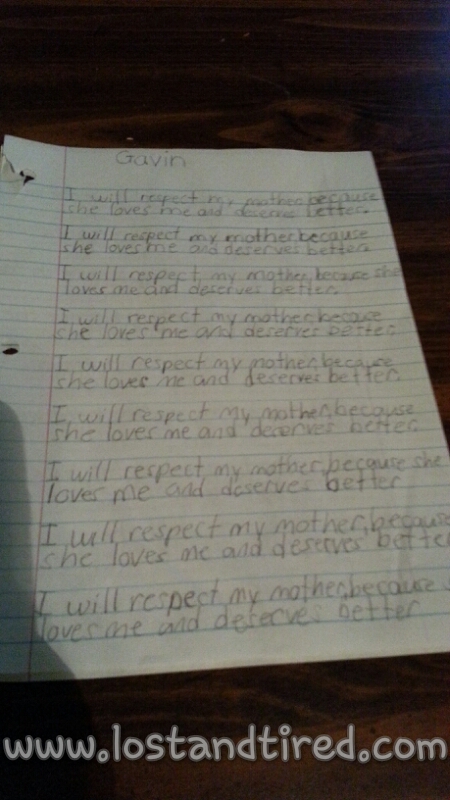 Gavin
I will respect my mother, because
she loves me and deserve better.
I will respect my mother, because
she loves me and deserves better.
I will respect my mother, because she
loves me and deserves better.
I will respect my mother, becaus
she loves me and deserves better.
I will respect my mother, because
she loves me and deserves better.
I will respect my mother, because
she loves me and deserves better.
I will respect my mother, because she
loves me and deserves better
I will respect my mother, because
she loves me and deserves better
I will respect my mother, because s
loves me and deserves better
www.lostandtired.com